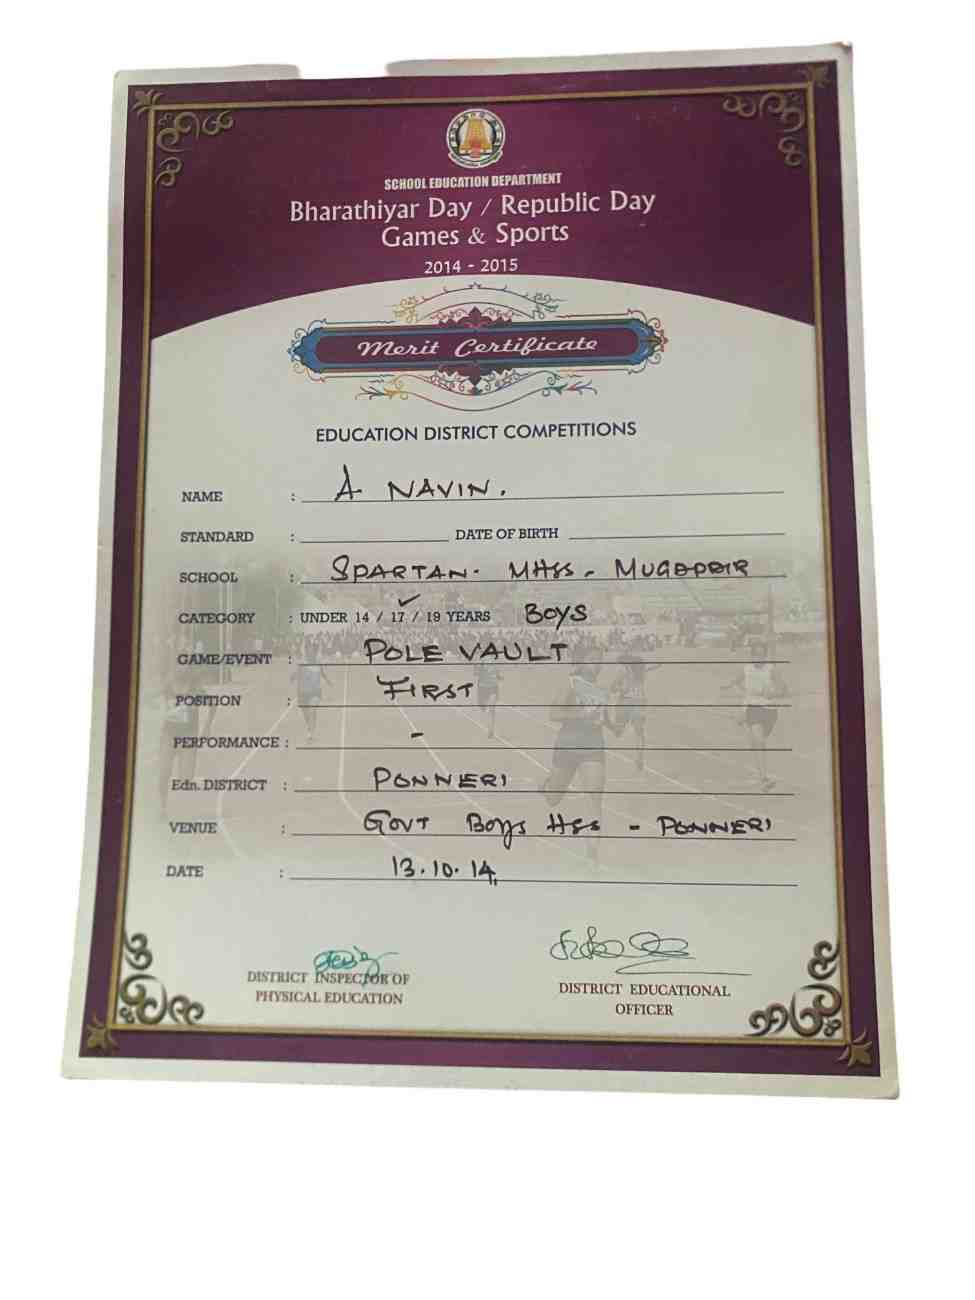 SCHOOL EDUCATION DEPARTMENT
Bharathiyar Day / Republic Day
Games & Sports
2014 - 2015
Merit Certificate
EDUCATION DISTRICT COMPETITIONS
NAME : A NAVIN.
STANDARD : DATE OF BIRTH
SCHOOL : SPARTAN. MHSS - MUGAPPAIR
CATEGORY : UNDER 14 / 17 ✓ / 19 YEARS BOYS
GAME/EVENT : POLE VAULT
POSITION : FIRST
PERFORMANCE : -
Edn. DISTRICT : PONNERI
VENUE : GOVT BOYS HSS - PONNERI
DATE : 13.10.14
DISTRICT INSPECTOR OF
PHYSICAL EDUCATION
DISTRICT EDUCATIONAL
OFFICER